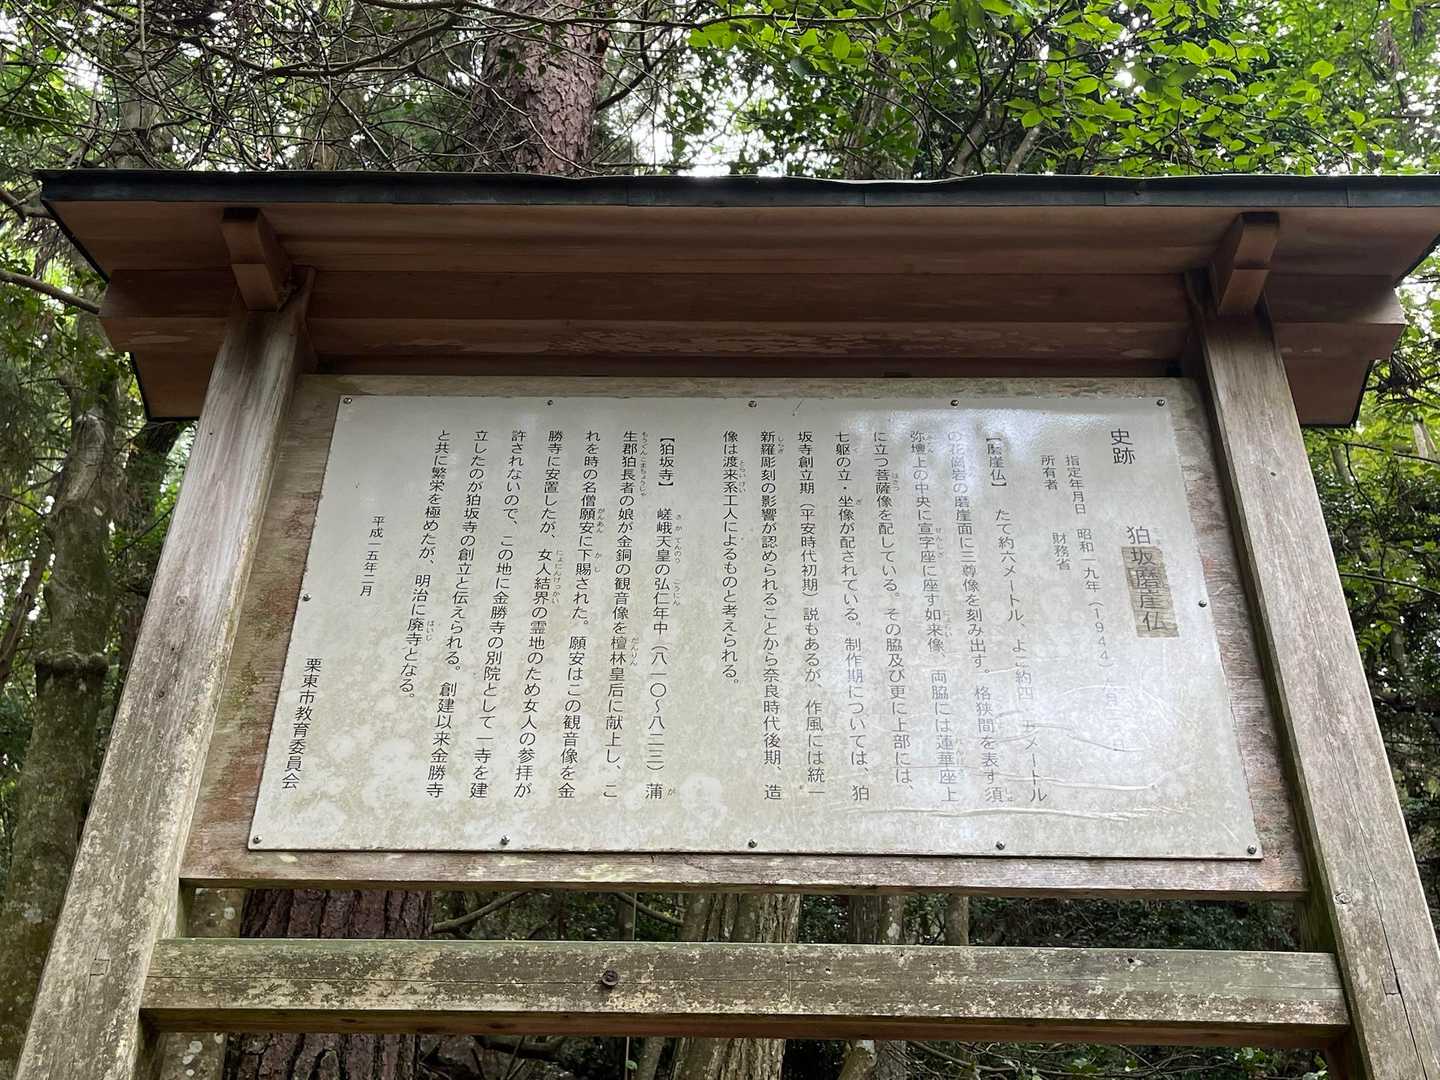 史跡
狛坂磨崖仏
指定年月日 昭和一九年(1944)
所有者 財務省
【磨崖仏】 たて約六メートル、よこ約四・五メートル
の花崗岩の磨崖面に三尊像を刻み出す。格狭間を表す須
弥壇上の中央に宣字座に座す如来像、両脇には蓮華座上
に立つ菩薩像を配している。その脇及び更に上部には、
七躯の立・坐像が配されている。制作期については、狛
坂寺創立期(平安時代初期)説もあるが、作風には統一
新羅彫刻の影響が認められることから奈良時代後期、造
像は渡来系工人によるものと考えられる。
【狛坂寺】 嵯峨天皇の弘仁年中(八一〇〜八二三)蒲
生郡狛長者の娘が金銅の観音像を檀林皇后に献上し、こ
れを時の名僧願安に下賜された。願安はこの観音像を金
勝寺に安置したが、女人結界の霊地のため女人の参拝が
許されないので、この地に金勝寺の別院として一寺を建
立したのが狛坂寺の創立と伝えられる。創建以来金勝寺
と共に繁栄を極めたが、明治に廃寺となる。
平成一五年二月
栗東市教育委員会